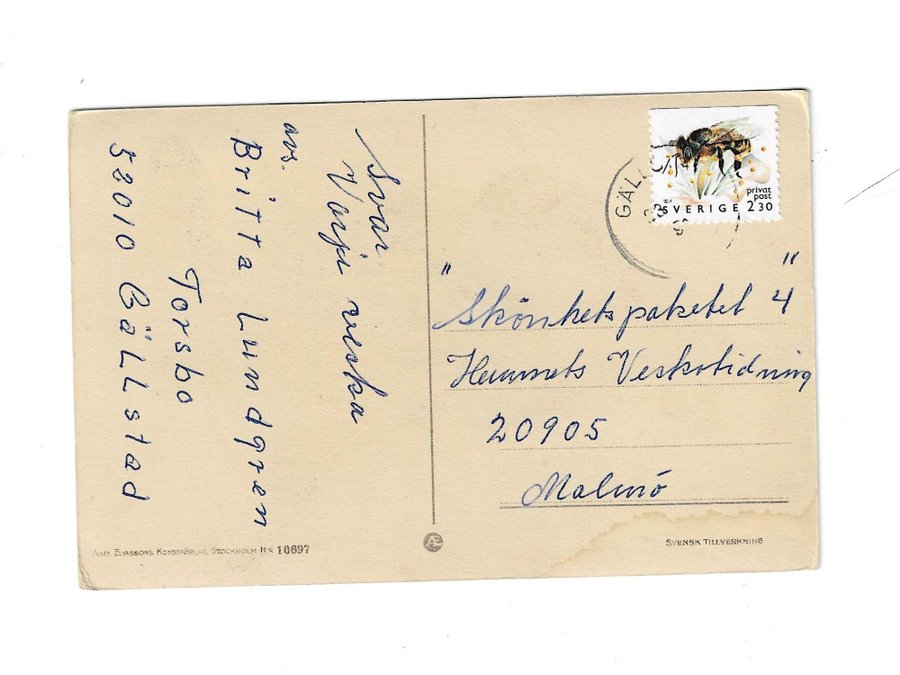 Svar
Varje vecka
avs.
Britta Lundgren
Torsbo
52010 Gällstad
SVERIGE
privat
post
2 30
"Skönhetspaketet 4"
Hemmets Veckotidning
20905
Malmö
AXEL ELIASSONS KONSTFÖRLAG, STOCKHOLM No 10697
Æ
SVENSK TILLVERKNING